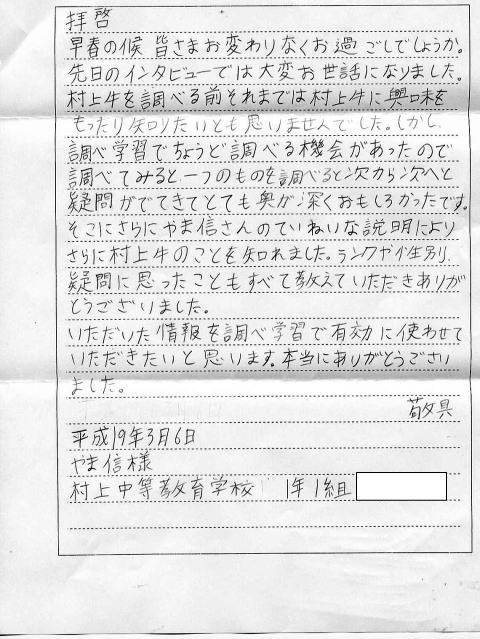 拝啓
早春の候 皆さまお変わりなくお過ごしでしょうか。
先日のインタビューでは大変お世話になりました。
村上牛を調べる前それまでは村上牛に興味を
もったり知りたいとも思いませんでした。しかし、
調べ学習でちょうど調べる機会があったので
調べてみると一つのものを調べると次から次へと
疑問がでてきてとても奥が深くおもしろかったです。
そこにさらにやま信さんのていねいな説明により
さらに村上牛のことを知れました。ランクや性別、
疑問に思ったこともすべて教えていただきありが
とうございました。
いただいた情報を調べ学習で有効に使わせて
いただきたいと思います。本当にありがとうござい
ました。
敬具
平成19年3月6日
やま信様
村上中等教育学校 1年1組